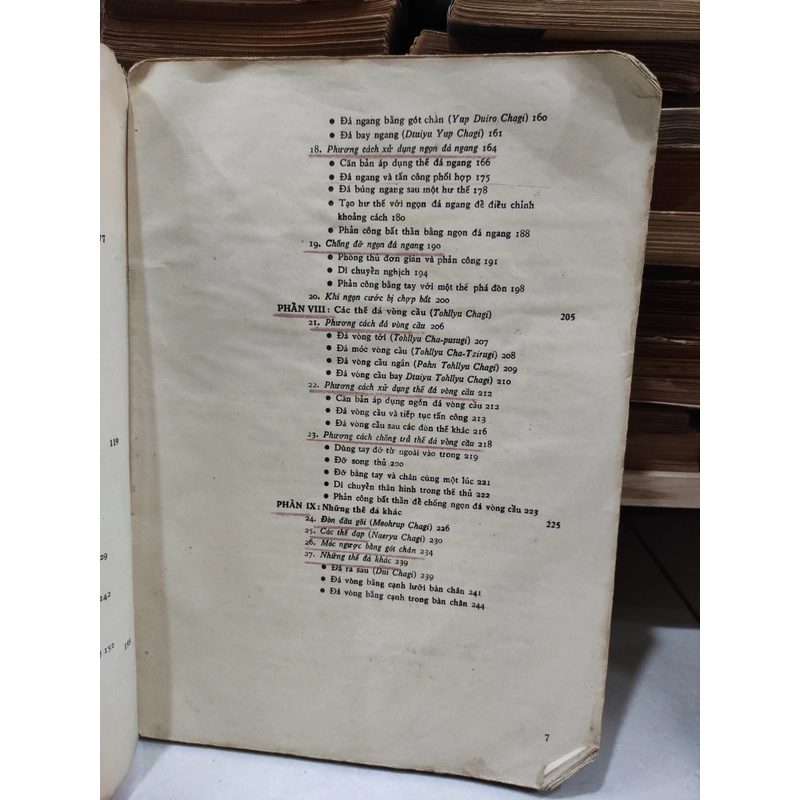 • Đá ngang bằng gót chân (Yup Duiro Chagi) 160
• Đá bay ngang (Dtaiyu Yup Chagi) 161
18. Phương cách xử dụng ngọn đá ngang 164
• Căn bản áp dụng thế đá ngang 166
• Đá ngang và tấn công phối hợp 175
• Đá búng ngang sau một hư thế 178
• Tạo hư thế với ngọn đá ngang để điều chỉnh
khoảng cách 180
• Phản công bất thần bằng ngọn đá ngang 188
19. Chống đỡ ngọn đá ngang 190
• Phòng thủ đơn giản và phản công 191
• Di chuyển nghịch 194
• Phản công bằng tay với một thế phá đòn 198
20. Khi ngọn cước bị chợp bắt 200
PHẦN VIII: Các thế đá vòng cầu (Tohllyu Chagi) 205
21. Phương cách đá vòng cầu 206
• Đá vòng tới (Tohllyu Cha-pusugi) 207
• Đá móc vòng cầu (Tohllyu Cha-Tzirugi) 208
• Đá vòng cầu ngắn (Pahn Tohllyu Chagi) 209
• Đá vòng cầu bay Dtaiyu Tohllyu Chagi) 210
22. Phương cách xử dụng thế đá vòng cầu 212
• Căn bản áp dụng ngón đá vòng cầu 212
• Đá vòng cầu và tiếp tục tấn công 213
• Đá vòng cầu sau các đòn thế khác 216
23. Phương cách chống trả thế đá vòng cầu 218
• Dùng tay đỡ từ ngoài vào trong 219
• Đỡ song thủ 220
• Đỡ bằng tay và chân cùng một lúc 221
• Di chuyển thân hình trong thế thủ 222
• Phản công bất thần để chống ngọn đá vòng cầu 223
PHẦN IX: Những thế đá khác 225
24. Đòn đầu gối (Moohrup Chagi) 226
25. Các thế đạp (Naeryu Chagi) 230
26. Móc ngược bằng gót chân 234
27. Những thế đá khác 239
• Đá ra sau (Dui Chagi) 239
• Đá vòng bằng cạnh lưỡi bàn chân 241
• Đá vòng bằng cạnh trong bàn chân 244
7
119
29
142
152